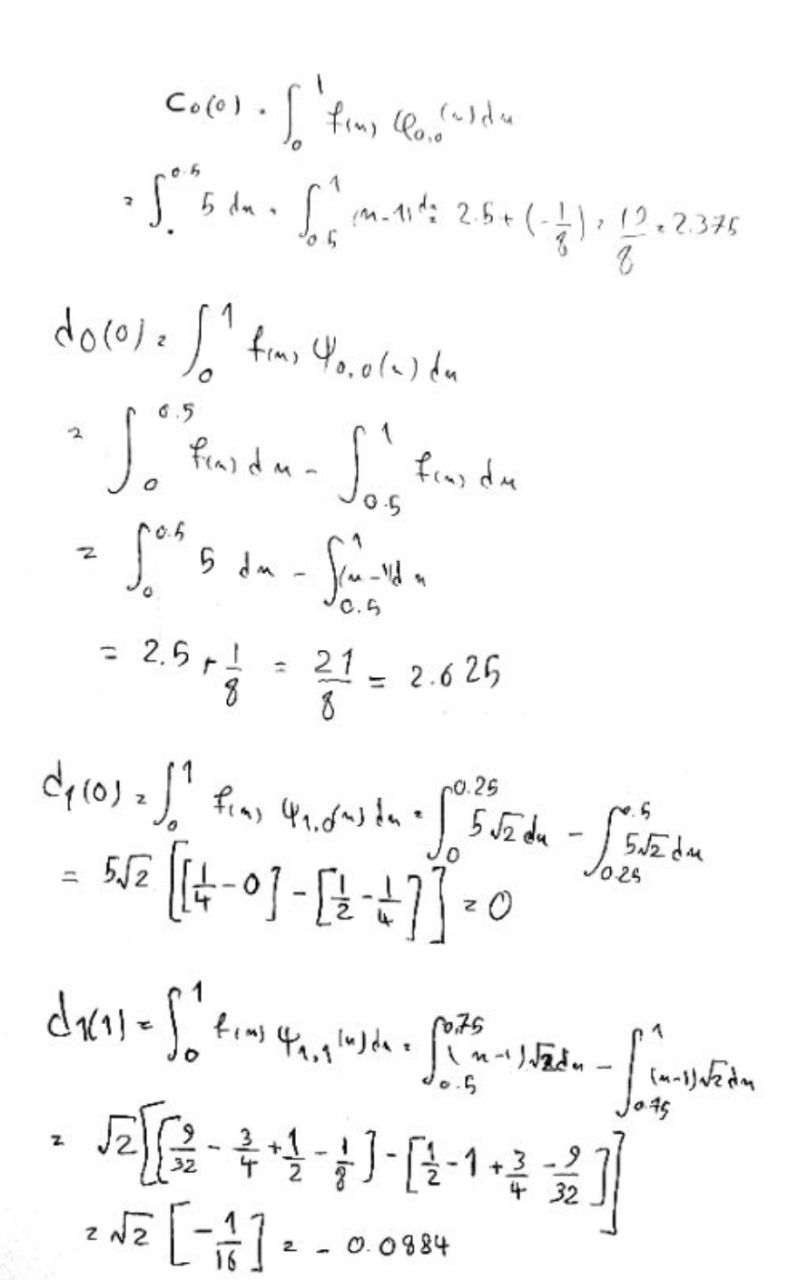 C₀(0) = ∫₀¹ f(x) φ₀,₀(x) dx
= ∫₀^0.5 5 dx + ∫_0.5^1 (x-1) dx = 2.5 + (-1/8) = 19/8 = 2.375
d₀(0) = ∫₀¹ f(x) ψ₀,₀(x) dx
= ∫₀^0.5 f(x) dx - ∫_0.5^1 f(x) dx
= ∫₀^0.5 5 dx - ∫_0.5^1 (x-1) dx
= 2.5 + 1/8 = 21/8 = 2.625
d₁(0) = ∫₀¹ f(x) ψ₁,₀(x) dx = ∫₀^0.25 5√2 dx - ∫_0.25^0.5 5√2 dx
= 5√2 [[1/4 - 0] - [1/2 - 1/4]] = 0
d₁(1) = ∫₀¹ f(x) ψ₁,₁(x) dx = ∫_0.5^0.75 (x-1)√2 dx - ∫_0.75^1 (x-1)√2 dx
= √2 [[9/32 - 3/4 + 1/2 - 1/8] - [1/2 - 1 + 3/4 - 9/32]]
= √2 [-1/16] = - 0.0884